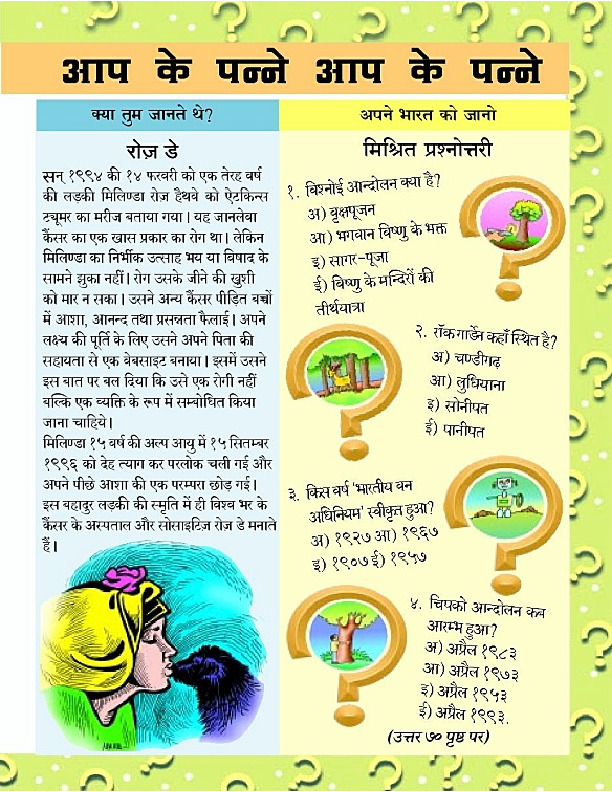 आप के पन्ने आप के पन्ने
क्या तुम जानते थे?
रोज़ डे
सन् १९९४ की १४ फरवरी को एक तेरह वर्ष
की लड़की मिलिण्डा रोज़ हैथवे को ऐटकिन्स
ट्यूमर का मरीज बताया गया। यह जानलेवा
कैंसर का एक खास प्रकार का रोग था। लेकिन
मिलिण्डा का निर्भीक उत्साह भय या विषाद के
सामने झुका नहीं। रोग उसके जीने की खुशी
को मार न सका। उसने अन्य कैंसर पीड़ित बच्चों
में आशा, आनन्द तथा प्रसन्नता फैलाई। अपने
लक्ष्य की पूर्ति के लिए उसने अपने पिता की
सहायता से एक वेबसाइट बनाया। इसमें उसने
इस बात पर बल दिया कि उसे एक रोगी नहीं
बल्कि एक व्यक्ति के रूप में सम्बोधित किया
जाना चाहिये।
मिलिण्डा १५ वर्ष की अल्प आयु में १५ सितम्बर
१९९६ को देह त्याग कर परलोक चली गई और
अपने पीछे आशा की एक परम्परा छोड़ गई।
इस बहादुर लड़की की स्मृति में ही विश्व भर के
कैंसर के अस्पताल और सोसाइटिज़ रोज़ डे मनाते
हैं।
अपने भारत को जानो
मिश्रित प्रश्नोत्तरी
१. विश्नोई आन्दोलन क्या है?
अ) वृक्षपूजन
आ) भगवान विष्णु के भक्त
इ) सागर-पूजा
ई) विष्णु के मन्दिरों की
तीर्थयात्रा
२. रॉक गार्डेन कहाँ स्थित है?
अ) चण्डीगढ़
आ) लुधियाना
इ) सोनीपत
ई) पानीपत
३. किस वर्ष 'भारतीय वन
अधिनियम' स्वीकृत हुआ?
अ) १९२७ आ) १९६७
इ) १९०७ ई) १९५७
४. चिपको आन्दोलन कब
आरम्भ हुआ?
अ) अप्रैल १९८३
आ) अप्रैल १९७३
इ) अप्रैल १९५३
ई) अप्रैल १९९३.
(उत्तर ७० पृष्ठ पर)